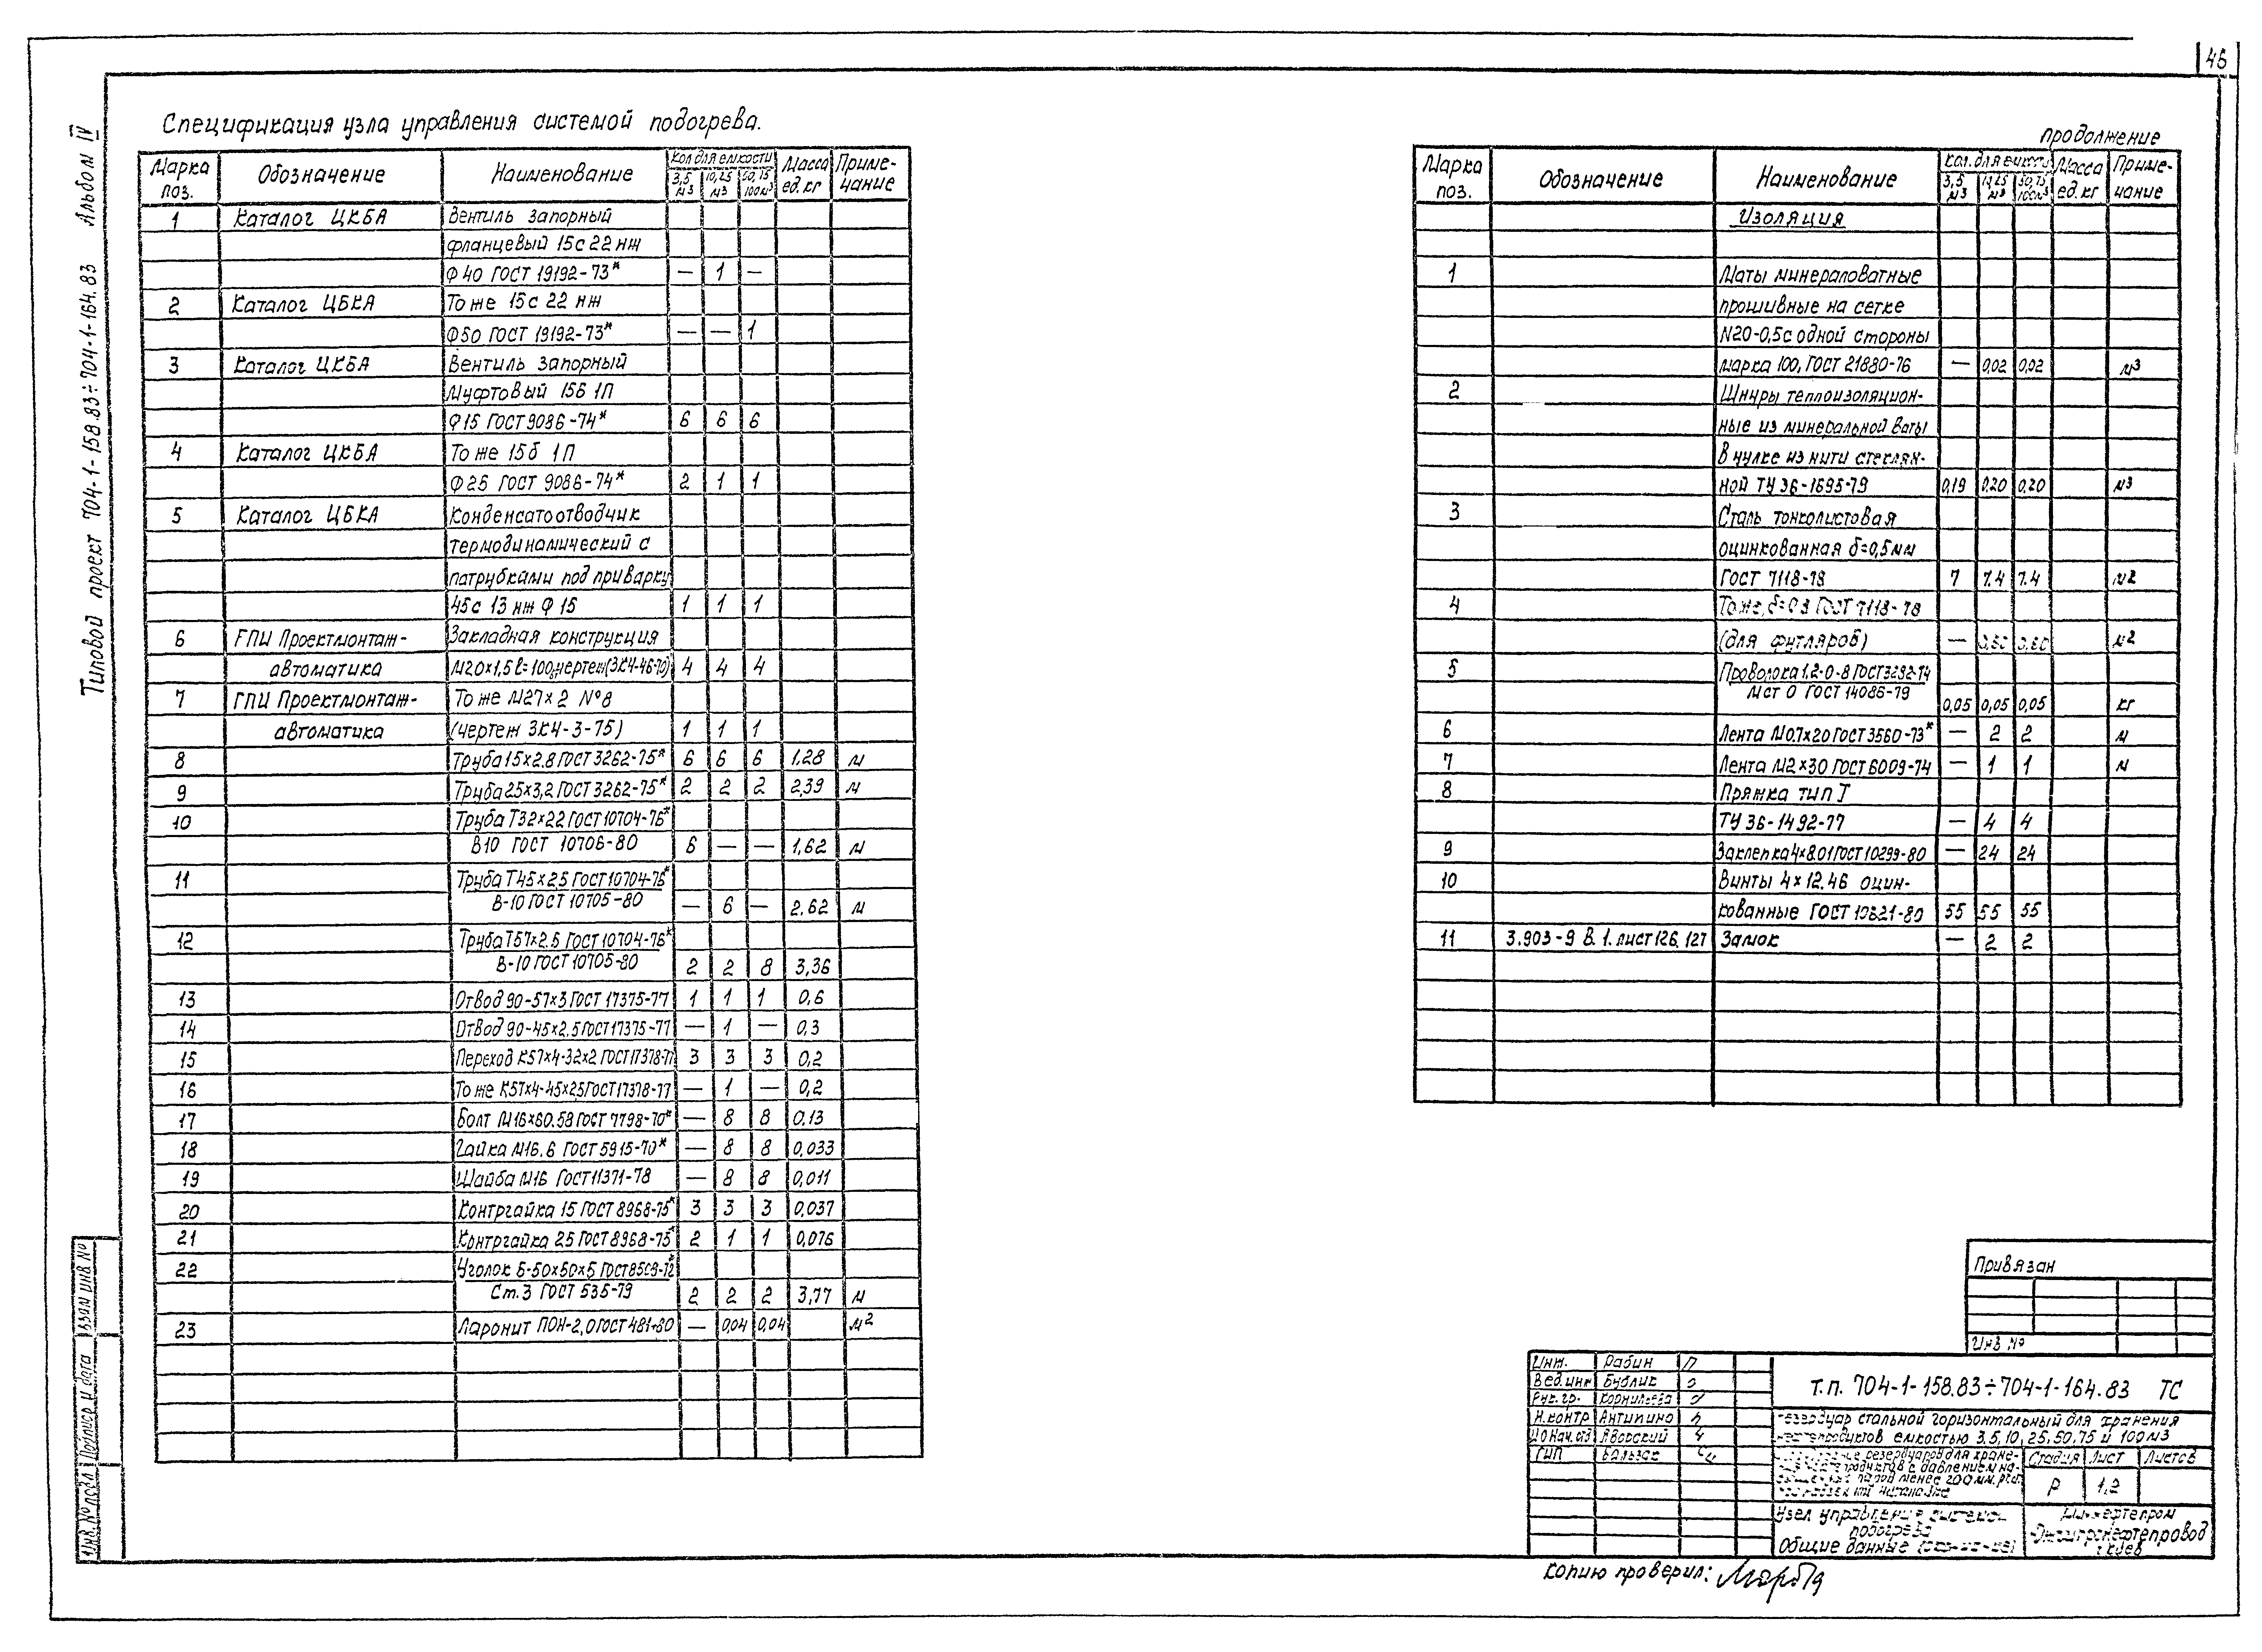 45
Типовой проект 704-1-158.83÷704-1-164.83 Альбом IV
Спецификация узла управления системой подогрева.
Марка поз. | Обозначение | Наименование | Кол для емкости 3,5 м3 | 10,25 м3 | 50,75 100м3 | Масса ед. кг | Примечание
1 Каталог ЦКБА Вентиль запорный
фланцевый 15с 22 нж
Ф 40 ГОСТ 19192-73* — 1 —
2 Каталог ЦБКА То же 15с 22 нж
Ф50 ГОСТ 19192-73* — — 1
3 Каталог ЦКБА Вентиль запорный
муфтовый 15Б 1П
Ф 15 ГОСТ 9086-74* 6 6 6
4 Каталог ЦКБА То же 15б 1П
Ф 25 ГОСТ 9086-74* 2 1 1
5 Каталог ЦБКА Конденсатоотводчик
термодинамический с
патрубками под приварку
45с 13 нж Ф 15 1 1 1
6 ГПИ Проектмонтаж- Закладная конструкция
автоматика М20×1,5 ℓ=100, чертеж (ЗК4-46-70) 4 4 4
7 ГПИ Проектмонтаж- То же М27×2 №8
автоматика (чертеж ЗК4-3-75) 1 1 1
8 Труба 15×2.8 ГОСТ 3262-75* 6 6 6 1,28 м
9 Труба 25×3,2 ГОСТ 3262-75* 2 2 2 2,39 м
10 Труба Т32×22 ГОСТ 10704-76*
В10 ГОСТ 10706-80 6 — — 1,62 м
11 Труба Т45×2.5 ГОСТ 10704-76*
В-10 ГОСТ 10705-80 — 6 — 2.62 м
12 Труба Т57×2.5 ГОСТ 10704-76*
В-10 ГОСТ 10705-80 2 2 8 3,36
13 Отвод 90-57×3 ГОСТ 17375-77 1 1 1 0,6
14 Отвод 90-45×2.5 ГОСТ 17375-77 — 1 — 0,3
15 Переход К57×4-32×2 ГОСТ 17378-77 3 3 3 0,2
16 То же К57×4-45×2,5 ГОСТ 17378-77 — 1 — 0,2
17 Болт М16×60.58 ГОСТ 7798-70* — 8 8 0,13
18 Гайка М16.6 ГОСТ 5915-70* — 8 8 0,033
19 Шайба М16 ГОСТ 11371-78 — 8 8 0,011
20 Контргайка 15 ГОСТ 8968-75* 3 3 3 0,037
21 Контргайка 25 ГОСТ 8968-75* 2 1 1 0,076
22 Уголок Б-50×50×5 ГОСТ 8509-72*
Ст.3 ГОСТ 535-79 2 2 2 3,77 м
23 Паронит ПОН-2,0 ГОСТ 481-80 — 0,04 0,04 м2
продолжение
Марка поз. | Обозначение | Наименование | Кол. для емкости 3,5 м3 | 10,25 м3 | 50,75 100м3 | Масса ед. кг | Примечание
Изоляция
1 Маты минераловатные
прошивные на сетке
N20-0,5 с одной стороны
марка 100, ГОСТ 21880-76 — 0,02 0,02 м3
2 Шнуры теплоизоляцион-
ные из минеральной ваты
в чулке из нити стеклян-
ной ТУ 36-1695-79 0,19 0.20 0,20 м3
3 Сталь тонколистовая
оцинкованная δ=0,5мм
ГОСТ 7118-78 7 7.4 7.4 м2
4 То же, δ=0,8 ГОСТ 7118-78
(для футляров) — м2
5 Проволока 1,2-0-8 ГОСТ 3282-74
Мст 0 ГОСТ 14086-79
0,05 0,05 0,05 кг
6 Лента М0.7×20 ГОСТ 3560-73* — 2 2 м
7 Лента М2×30 ГОСТ 6009-74 — 1 1 м
8 Пряжка тип I
ТУ 36-1492-77 — 4 4
9 Заклепка 4×8.01 ГОСТ 10299-80 — 24 24
10 Винты 4×12.46 оцин-
кованные ГОСТ 10621-80 55 55 55
11 3.903-9 В. 1. лист 126, 127 Замок — 2 2
Привязан
Инв №
Инж. Рабин
Вед.инж Бублик
Рук.гр. Корнильева
Н.контр Антипино
ИО Нач.отд Яворский
ГИП Бальзак
Т.п. 704-1-158.83÷704-1-164.83 ТС
Резервуар стальной горизонтальный для хранения
нефтепродуктов емкостью 3,5,10,25,50,75 и 100м3
резервуаров для хране-
с давлением на-
паров менее 200 мм. рт.ст.
Стадия Лист Листов
Р 1,2
Узел управления системы
подогрева
Общие данные
Миннефтепром
Южгипронефтепровод
г.Киев
Взам инв №
Подпись и дата
Инв. № подл
Копию проверил: